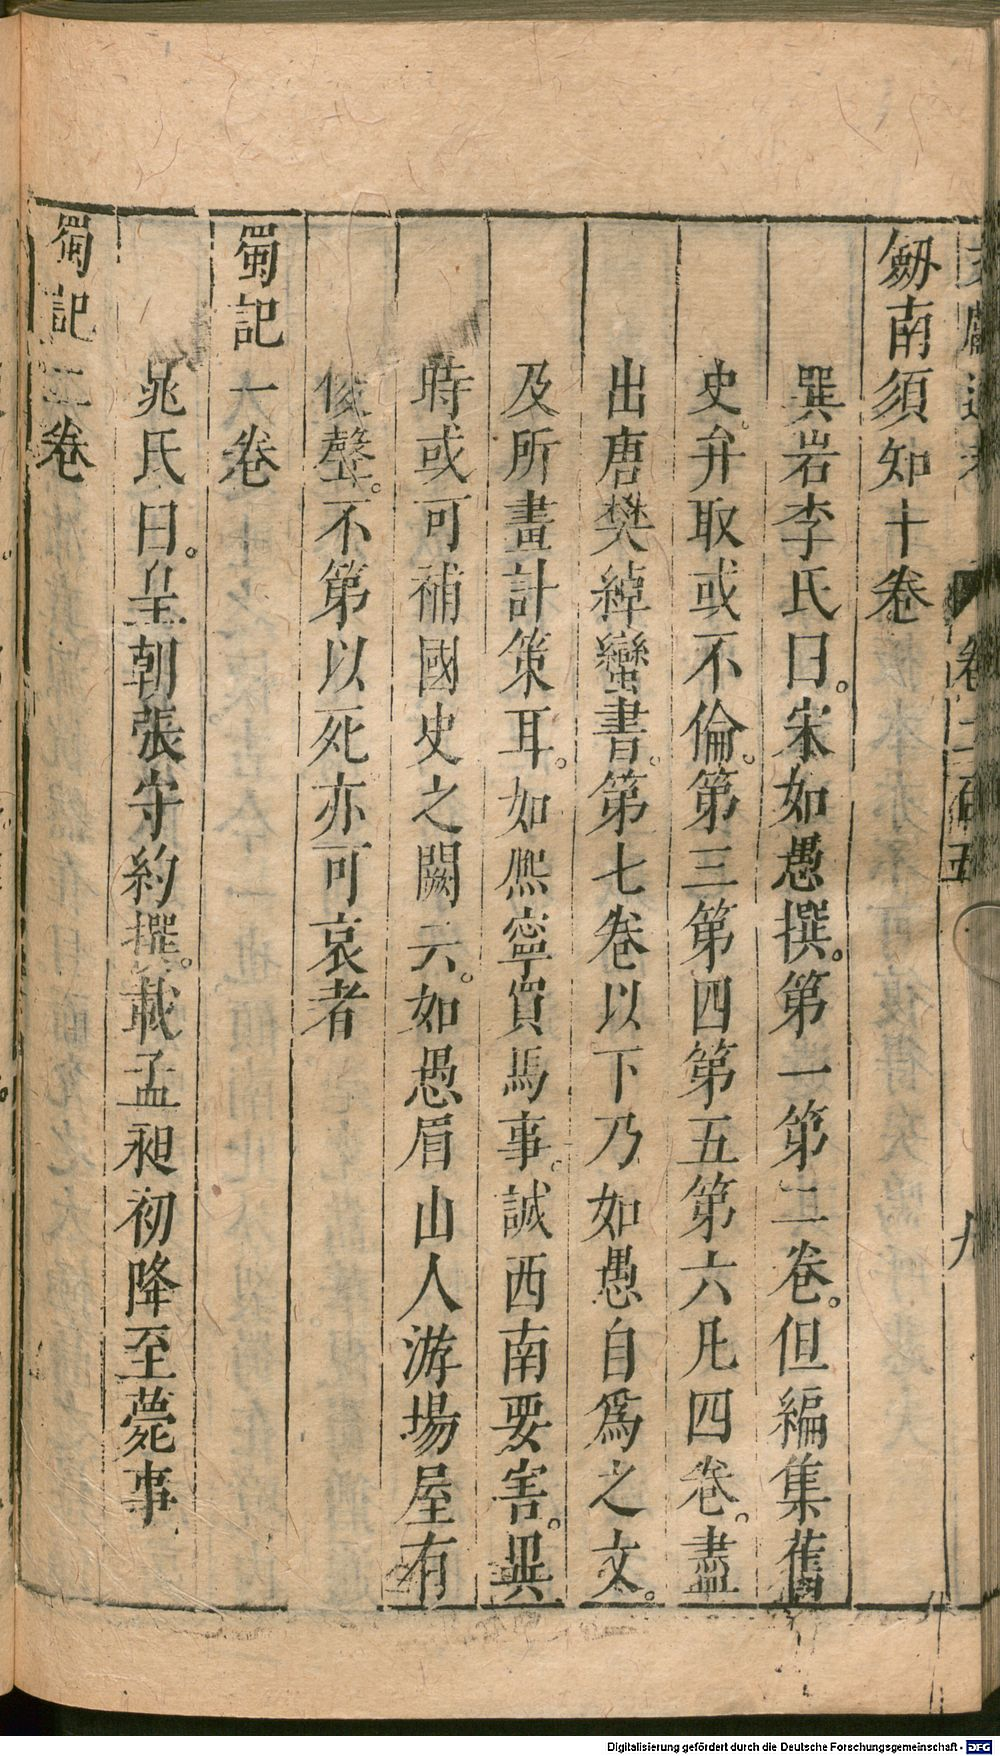 劒南須知十卷
巽岩李氏曰。宋如愚撰。第一第二卷。但編集舊
史。弁取或不倫。第三第四第五第六凡四卷。盡
出唐樊綽蠻書。第七卷以下乃如愚自爲之文。
及所畫計策耳。如熈寧買馬事。誠西南要害。異
時或可補國史之闕云。如愚眉山人游場屋有
俊聲。不第以死亦可哀者
蜀記一卷
晁氏曰。皇朝張守約撰。載孟昶初降至薨事
蜀記二卷
Digitalisierung gefördert durch die Deutsche Forschungsgemeinschaft - DFG